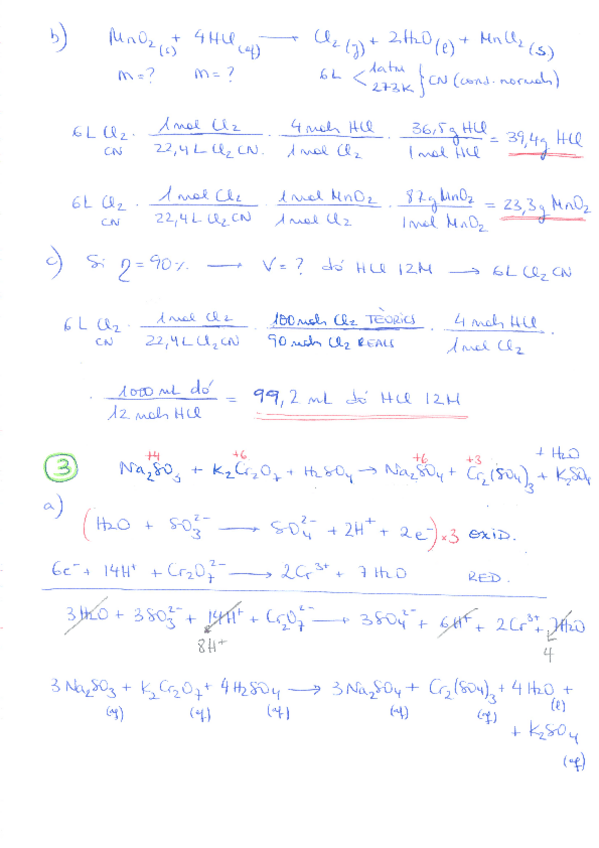 b) MnO₂(s) + 4HCl(aq) → Cl₂(g) + 2H₂O(l) + MnCl₂(s)
m=? m=? 6L < 1atm 273K } CN (cond. normals)
6L Cl₂ CN · 1 mol Cl₂ / 22,4 L Cl₂ CN · 4 mols HCl / 1 mol Cl₂ · 36,5g HCl / 1 mol HCl = 39,4g HCl
6L Cl₂ CN · 1 mol Cl₂ / 22,4 L Cl₂ CN · 1 mol MnO₂ / 1 mol Cl₂ · 87g MnO₂ / 1 mol MnO₂ = 23,3g MnO₂
c) Si η=90% → V=? dó HCl 12M → 6L Cl₂ CN
6L Cl₂ CN · 1 mol Cl₂ / 22,4 L Cl₂ CN · 100 mols Cl₂ TEÒRICS / 90 mols Cl₂ REALS · 4 mols HCl / 1 mol Cl₂ ·
· 1000 mL dó / 12 mols HCl = 99,2 mL dó HCl 12M
3 Na₂SO₃ + K₂Cr₂O₇ + H₂SO₄ → Na₂SO₄ + Cr₂(SO₄)₃ + K₂SO₄ + H₂O
+4 +6 +6 +3
a) (H₂O + SO₃²⁻ → SO₄²⁻ + 2H⁺ + 2e⁻)×3 OXID.
6e⁻ + 14H⁺ + Cr₂O₇²⁻ → 2Cr³⁺ + 7H₂O RED.
3H₂O + 3SO₃²⁻ + 14H⁺ + Cr₂O₇²⁻ → 3SO₄²⁻ + 6H⁺ + 2Cr³⁺ + 7H₂O
8H⁺ 4
3Na₂SO₃(aq) + K₂Cr₂O₇(aq) + 4H₂SO₄(aq) → 3Na₂SO₄(aq) + Cr₂(SO₄)₃(aq) + 4H₂O(l) +
+ K₂SO₄(aq)